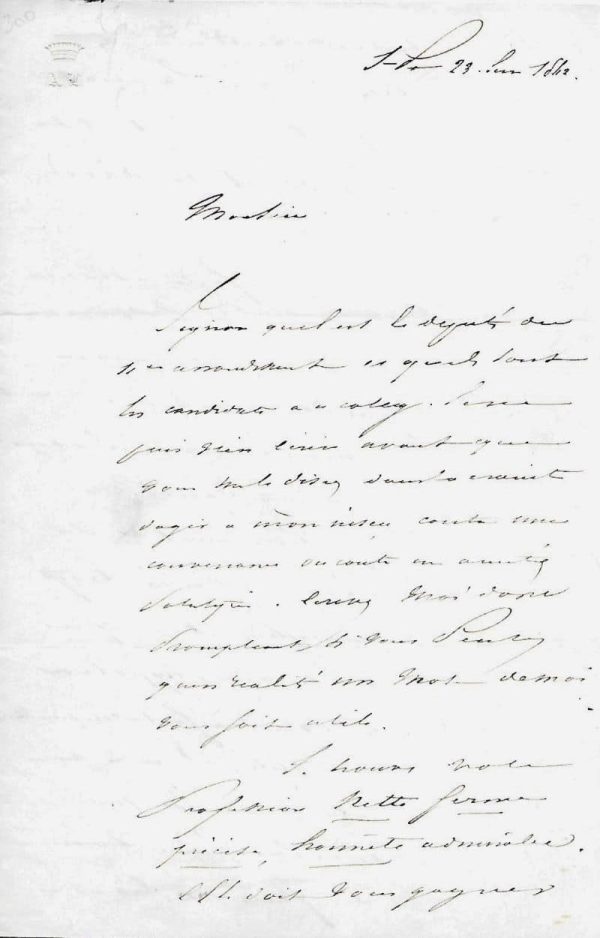 300
St-P 23. 1842.
Monsieur
J'ignore quel est le député du
11e arrondissement et quels sont
les candidats à ce colleg. Je ne
puis rien écrire avant que
vous me le disiez dans la crainte
d'agir à mon insçu contre une
convenance ou contre un amitié
politique. Ecrivez moi donc
promptement si vous pensez
qu'en réalité un mot de moi
vous soit utile.
Je trouve votre
Profession nette ferme
précise, honnête admirable.
Elle doit vous gagner